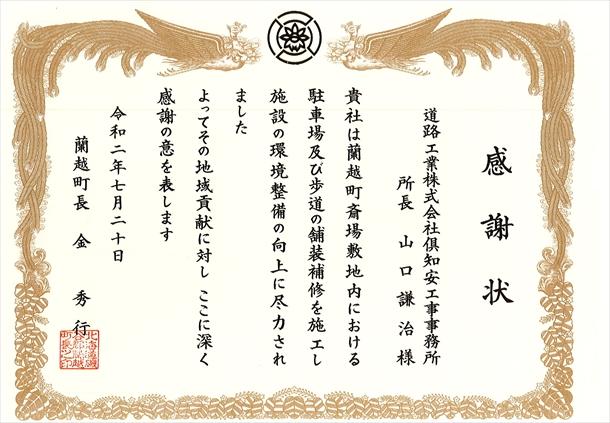 感謝状
道路工業株式会社倶知安工事事務所
所長 山口謙治様
貴社は蘭越町斎場敷地内における
駐車場及び歩道の舗装補修を施工し
施設の環境整備の向上に尽力され
ました
よってその地域貢献に対し ここに深く
感謝の意を表します
令和二年七月二十日
蘭越町長 金 秀行